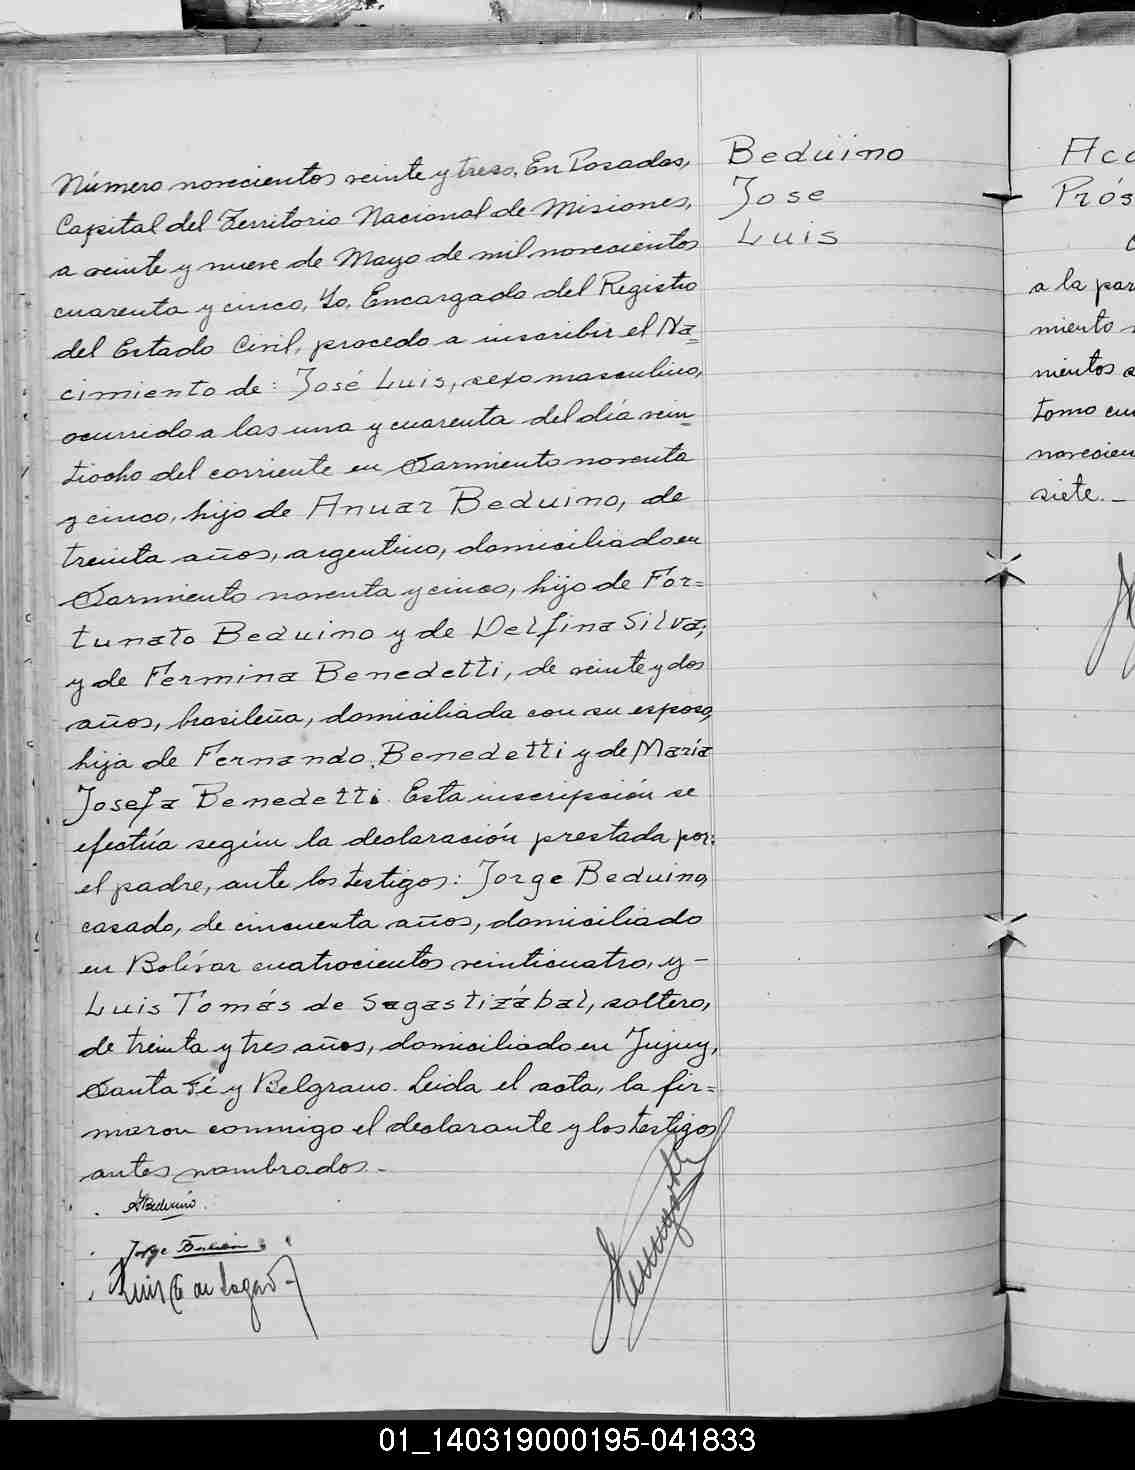 Beduino
Jose
Luis
Número novecientos veinte y tres. En Posadas,
Capital del Territorio Nacional de Misiones,
a veinte y nueve de Mayo de mil novecientos
cuarenta y cinco, Yo, Encargado del Registro
del Estado Civil, procedo a inscribir el Na=
cimiento de: José Luis, sexo masculino,
ocurrido a las una y cuarenta del día vein=
tiocho del corriente en Sarmiento noventa
y cinco, hijo de Anuar Beduino, de
treinta años, argentino, domiciliado en
Sarmiento noventa y cinco, hijo de For=
tunato Beduino y de Delfina Silva;
y de Fermina Benedetti, de veinte y dos
años, brasileña, domiciliada con su esposo,
hija de Fernando Benedetti y de María
Josefa Benedetti. Esta inscripción se
efectúa según la declaración prestada por:
el padre, ante los testigos: Jorge Beduino,
casado, de cincuenta años, domiciliado
en Bolívar cuatrocientos veinticuatro, y -
Luis Tomás de Sagastizábal, soltero,
de treinta y tres años, domiciliado en Jujuy,
Santa Fé y Belgrano. Leida el acta, la fir=
maron conmigo el declarante y los testigos
antes nombrados. -
ABeduino
Jorge
Luis
Aco
Prós
a la par
miento
mientos
tomo cu
novecien
siete. -
01_140319000195-041833